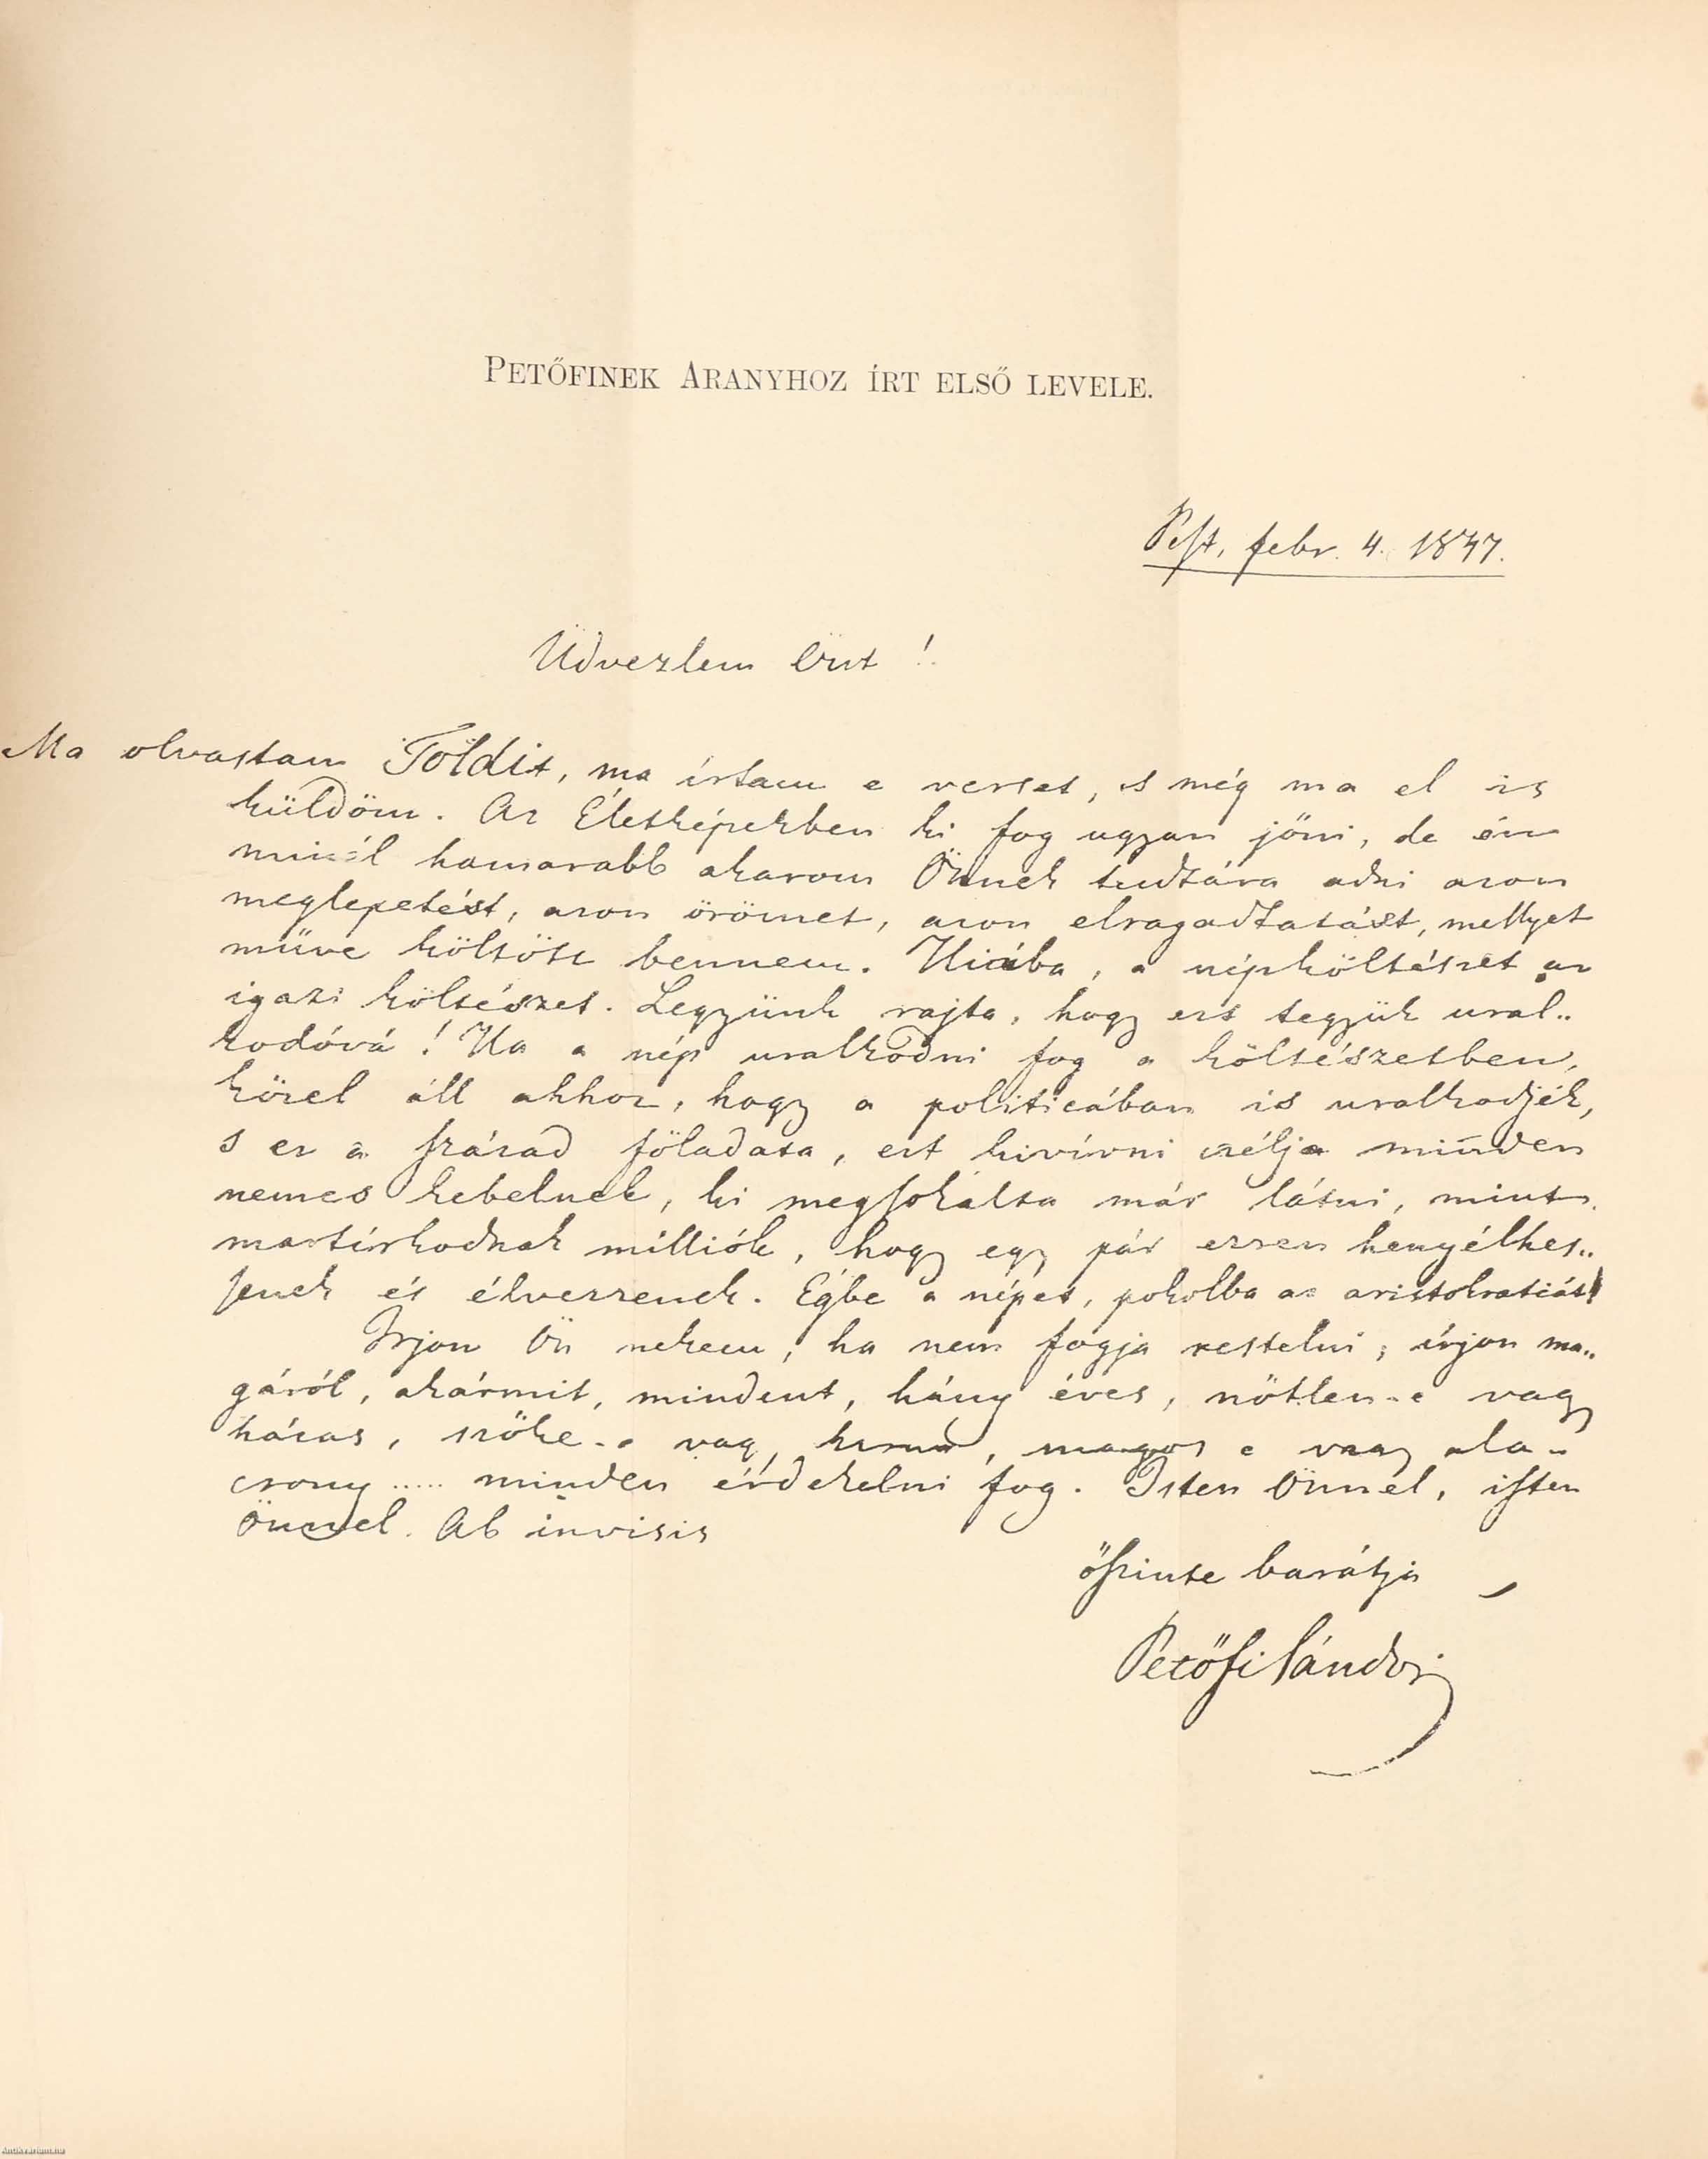 PETŐFINEK ARANYHOZ ÍRT ELSŐ LEVELE.
Pest, febr. 4. 1847.
Üdvezlem Önt!
Ma olvastam Toldit, ma írtam e verset, s még ma el is
küldöm. Az Életképekben ki fog ugyan jőni, de én
minél hamarabb akarom Önnek tudtára adni azon
meglepetést, azon örömet, azon elragadtatást, mellyet
műve költött bennem. Hiába, a népköltészet az
igazi költészet. Legyünk rajta, hogy ezt tegyük ural..
kodóvá! Ha a nép uralkodni fog a költészetben,
közel áll ahhoz, hogy a politicában is uralkodjék,
s ez a század föladata, ezt kivívni czélja minden
nemes kebelnek, ki megsokalta már látni, mint
martírkodnak milliók, hogy egy pár ezren henyélhes..
senek és élvezzenek. Égbe a népet, pokolba az aristokratiát!
Irjon Ön nekem, ha nem fogja restelni; írjon ma..
gáról, akármit, mindent, hány éves, nőtlen-e vagy
házas, szőke-e vagy barna, magos e vagy ala..
csony ..... minden érdekelni fog. Isten Önnel, isten
Önnel. Ab invisis
őszinte barátja
Petőfi Sándor
Antikvarium.hu